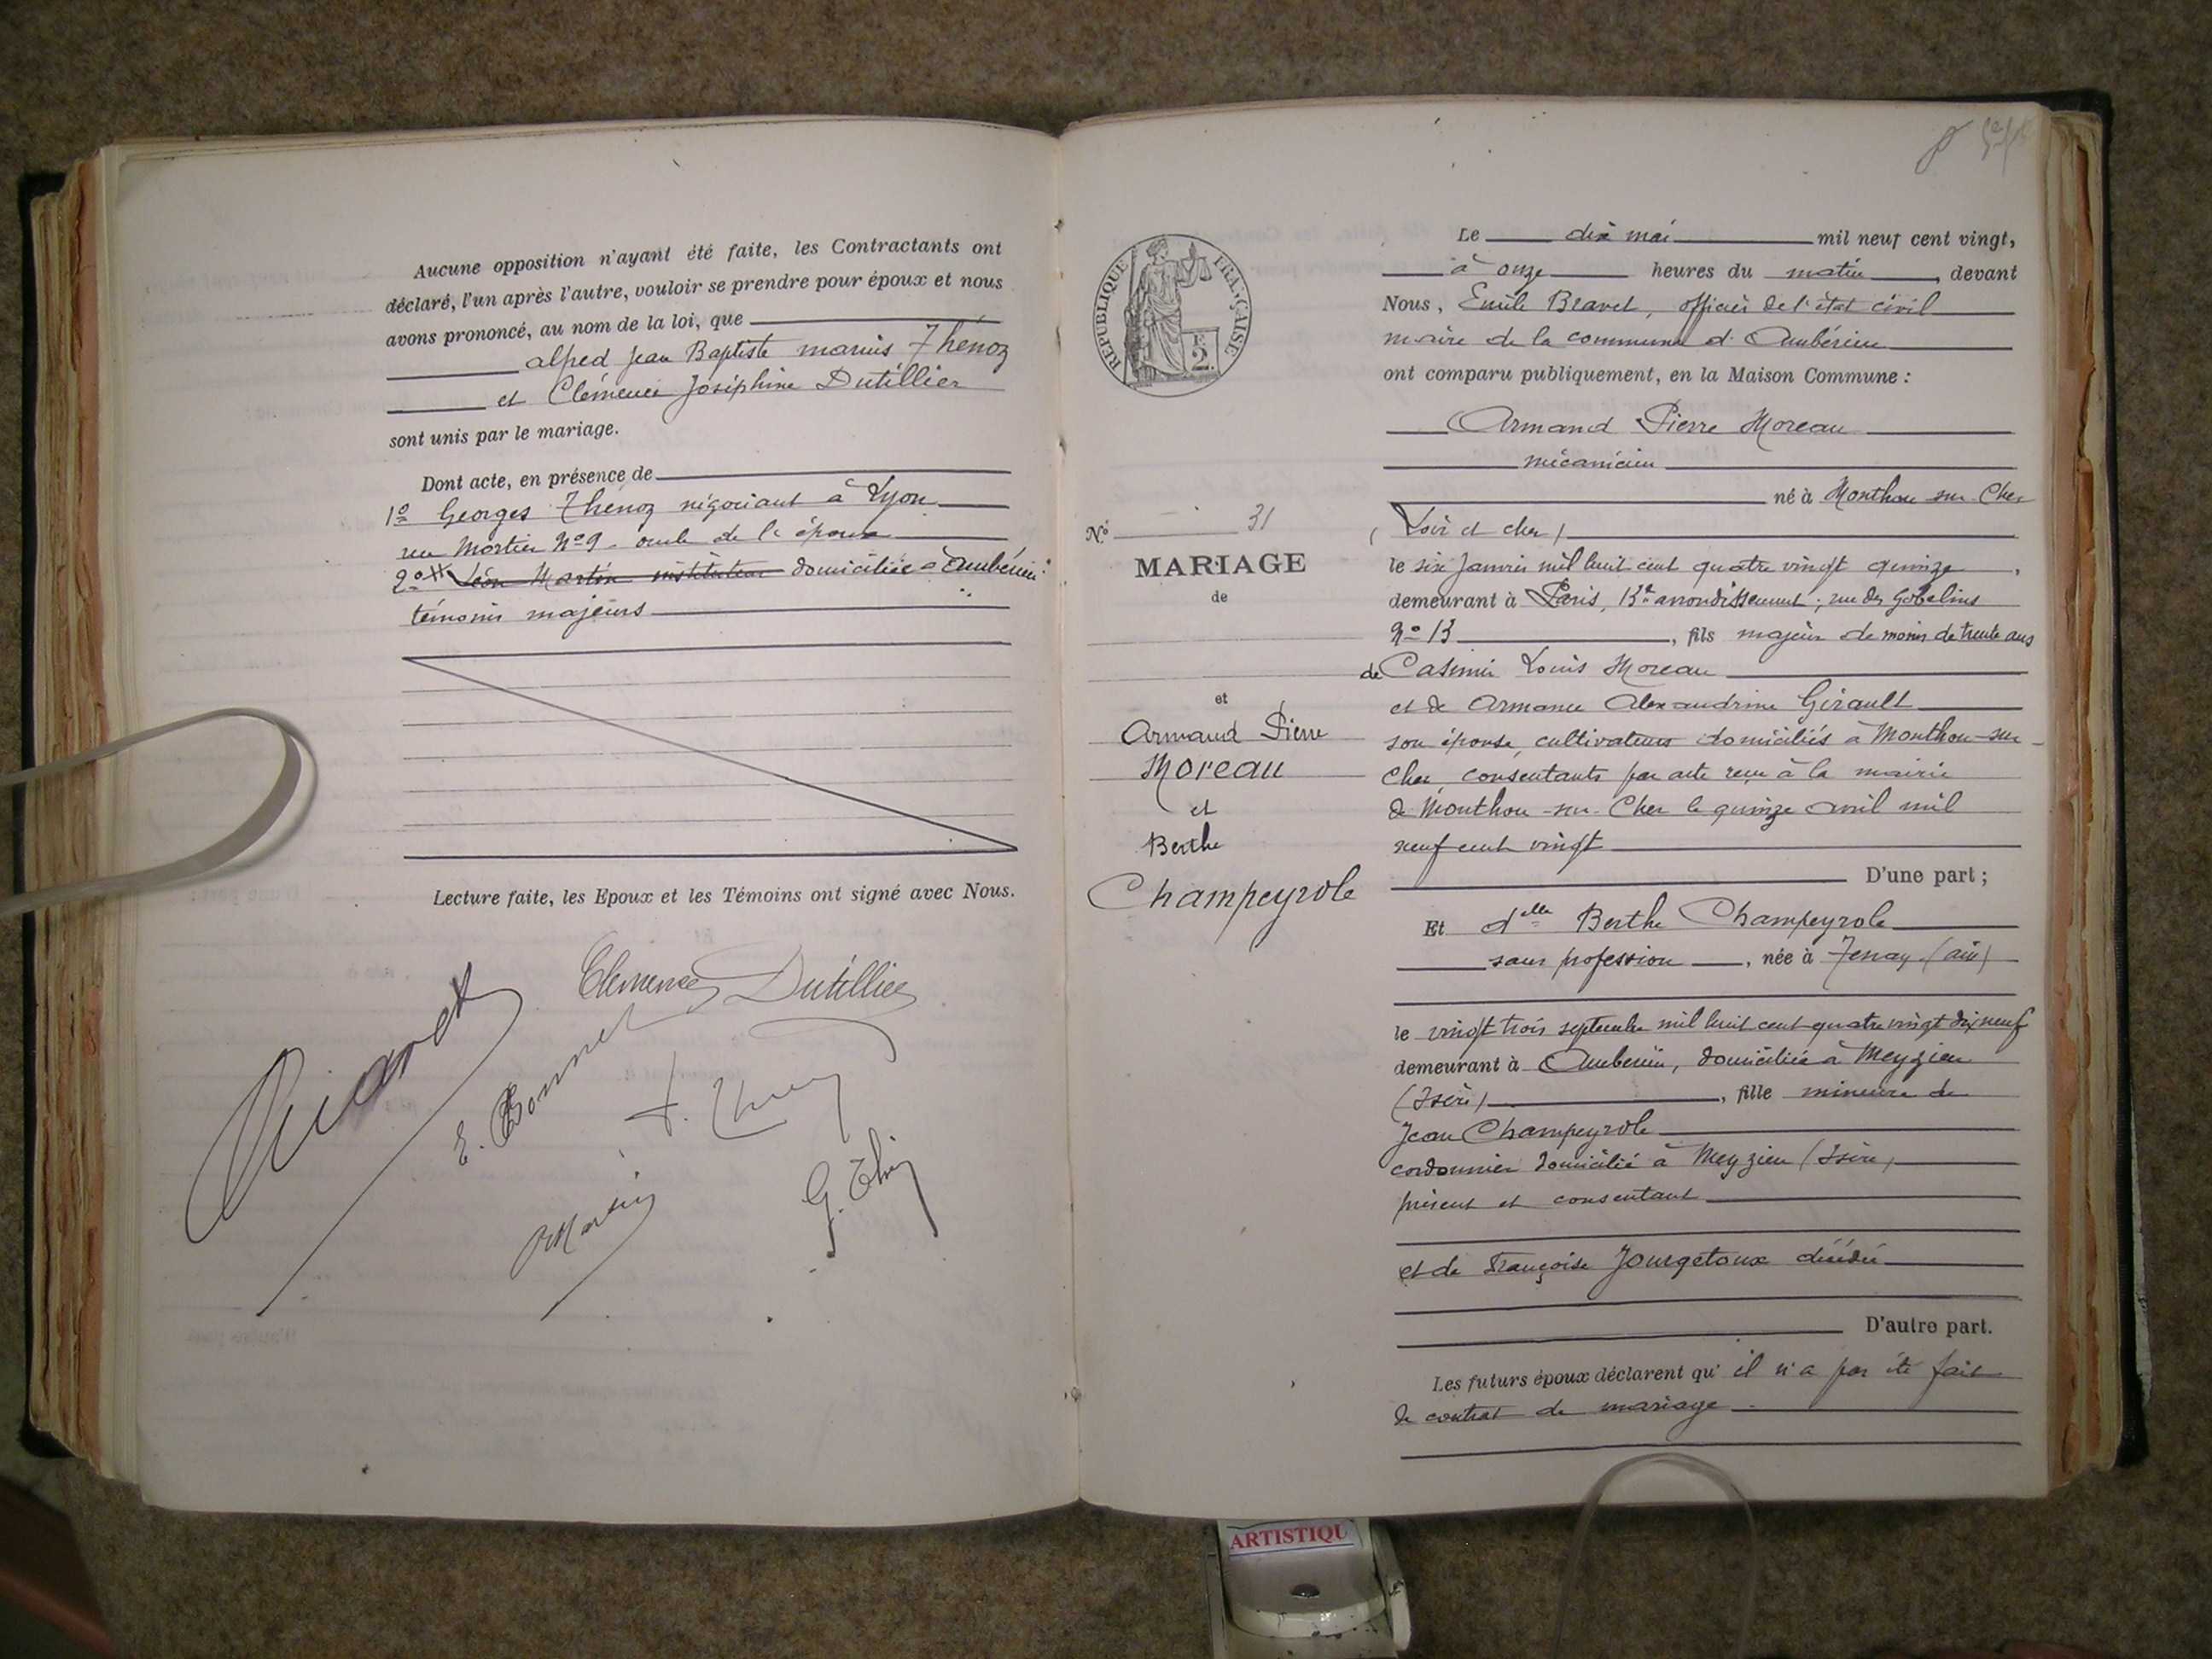 Aucune opposition n'ayant été faite, les Contractants ont
déclaré, l'un après l'autre, vouloir se prendre pour époux et nous
avons prononcé, au nom de la loi, que
alfred Jean Baptiste marius Thénoz
et Clémence Joséphine Dutillier
sont unis par le mariage.
Dont acte, en présence de
1º Georges Thénoz négociant à Lyon
rue Mortier Nº 9 - oncle de l'époux
2º Léon Martin instituteur domiciliée à Ambérieu
témoins majeurs
Lecture faite, les Epoux et les Témoins ont signé avec Nous.
Clemence Dutillier
E. Bonnet
Martin
REPUBLIQUE FRANÇAISE
2.
Nº 31
MARIAGE
de
et
Armand Pierre
Moreau
et
Berthe
Champeyrole
Le dix mai mil neuf cent vingt,
à onze heures du matin, devant
Nous, Emile Bravet, officier de l'état civil
maire de la commune d'Ambérieu
ont comparu publiquement, en la Maison Commune :
Armand Pierre Moreau
mécanicien
né à Monthou sur Cher
(Loir et cher)
le six Janvier mil huit cent quatre vingt quinze,
demeurant à Paris, 13e arrondissement ; rue des Gobelins
Nº 13, fils majeur de moins de trente ans
de Casimir Louis Moreau
et de Armance Alexandrine Girault
son épouse, cultivateurs domiciliés à Monthou-sur-
Cher, consentants par acte reçu à la mairie
de Monthou-sur-Cher le quinze avril mil
neuf cent vingt
D'une part ;
Et delle Berthe Champeyrole
sans profession, née à Tenay (ain)
le vingt trois septembre mil huit cent quatre vingt dix neuf
demeurant à Ambérieu, domiciliée à Meyzieu
(Isère), fille mineure de
Jean Champeyrole
cordonnier domicilié à Meyzieu (Isère)
présent et consentant
et de Françoise Jourgetoux décédée
D'autre part.
Les futurs époux déclarent qu'il n'a pas été fait
de contrat de mariage
ARTISTIQU